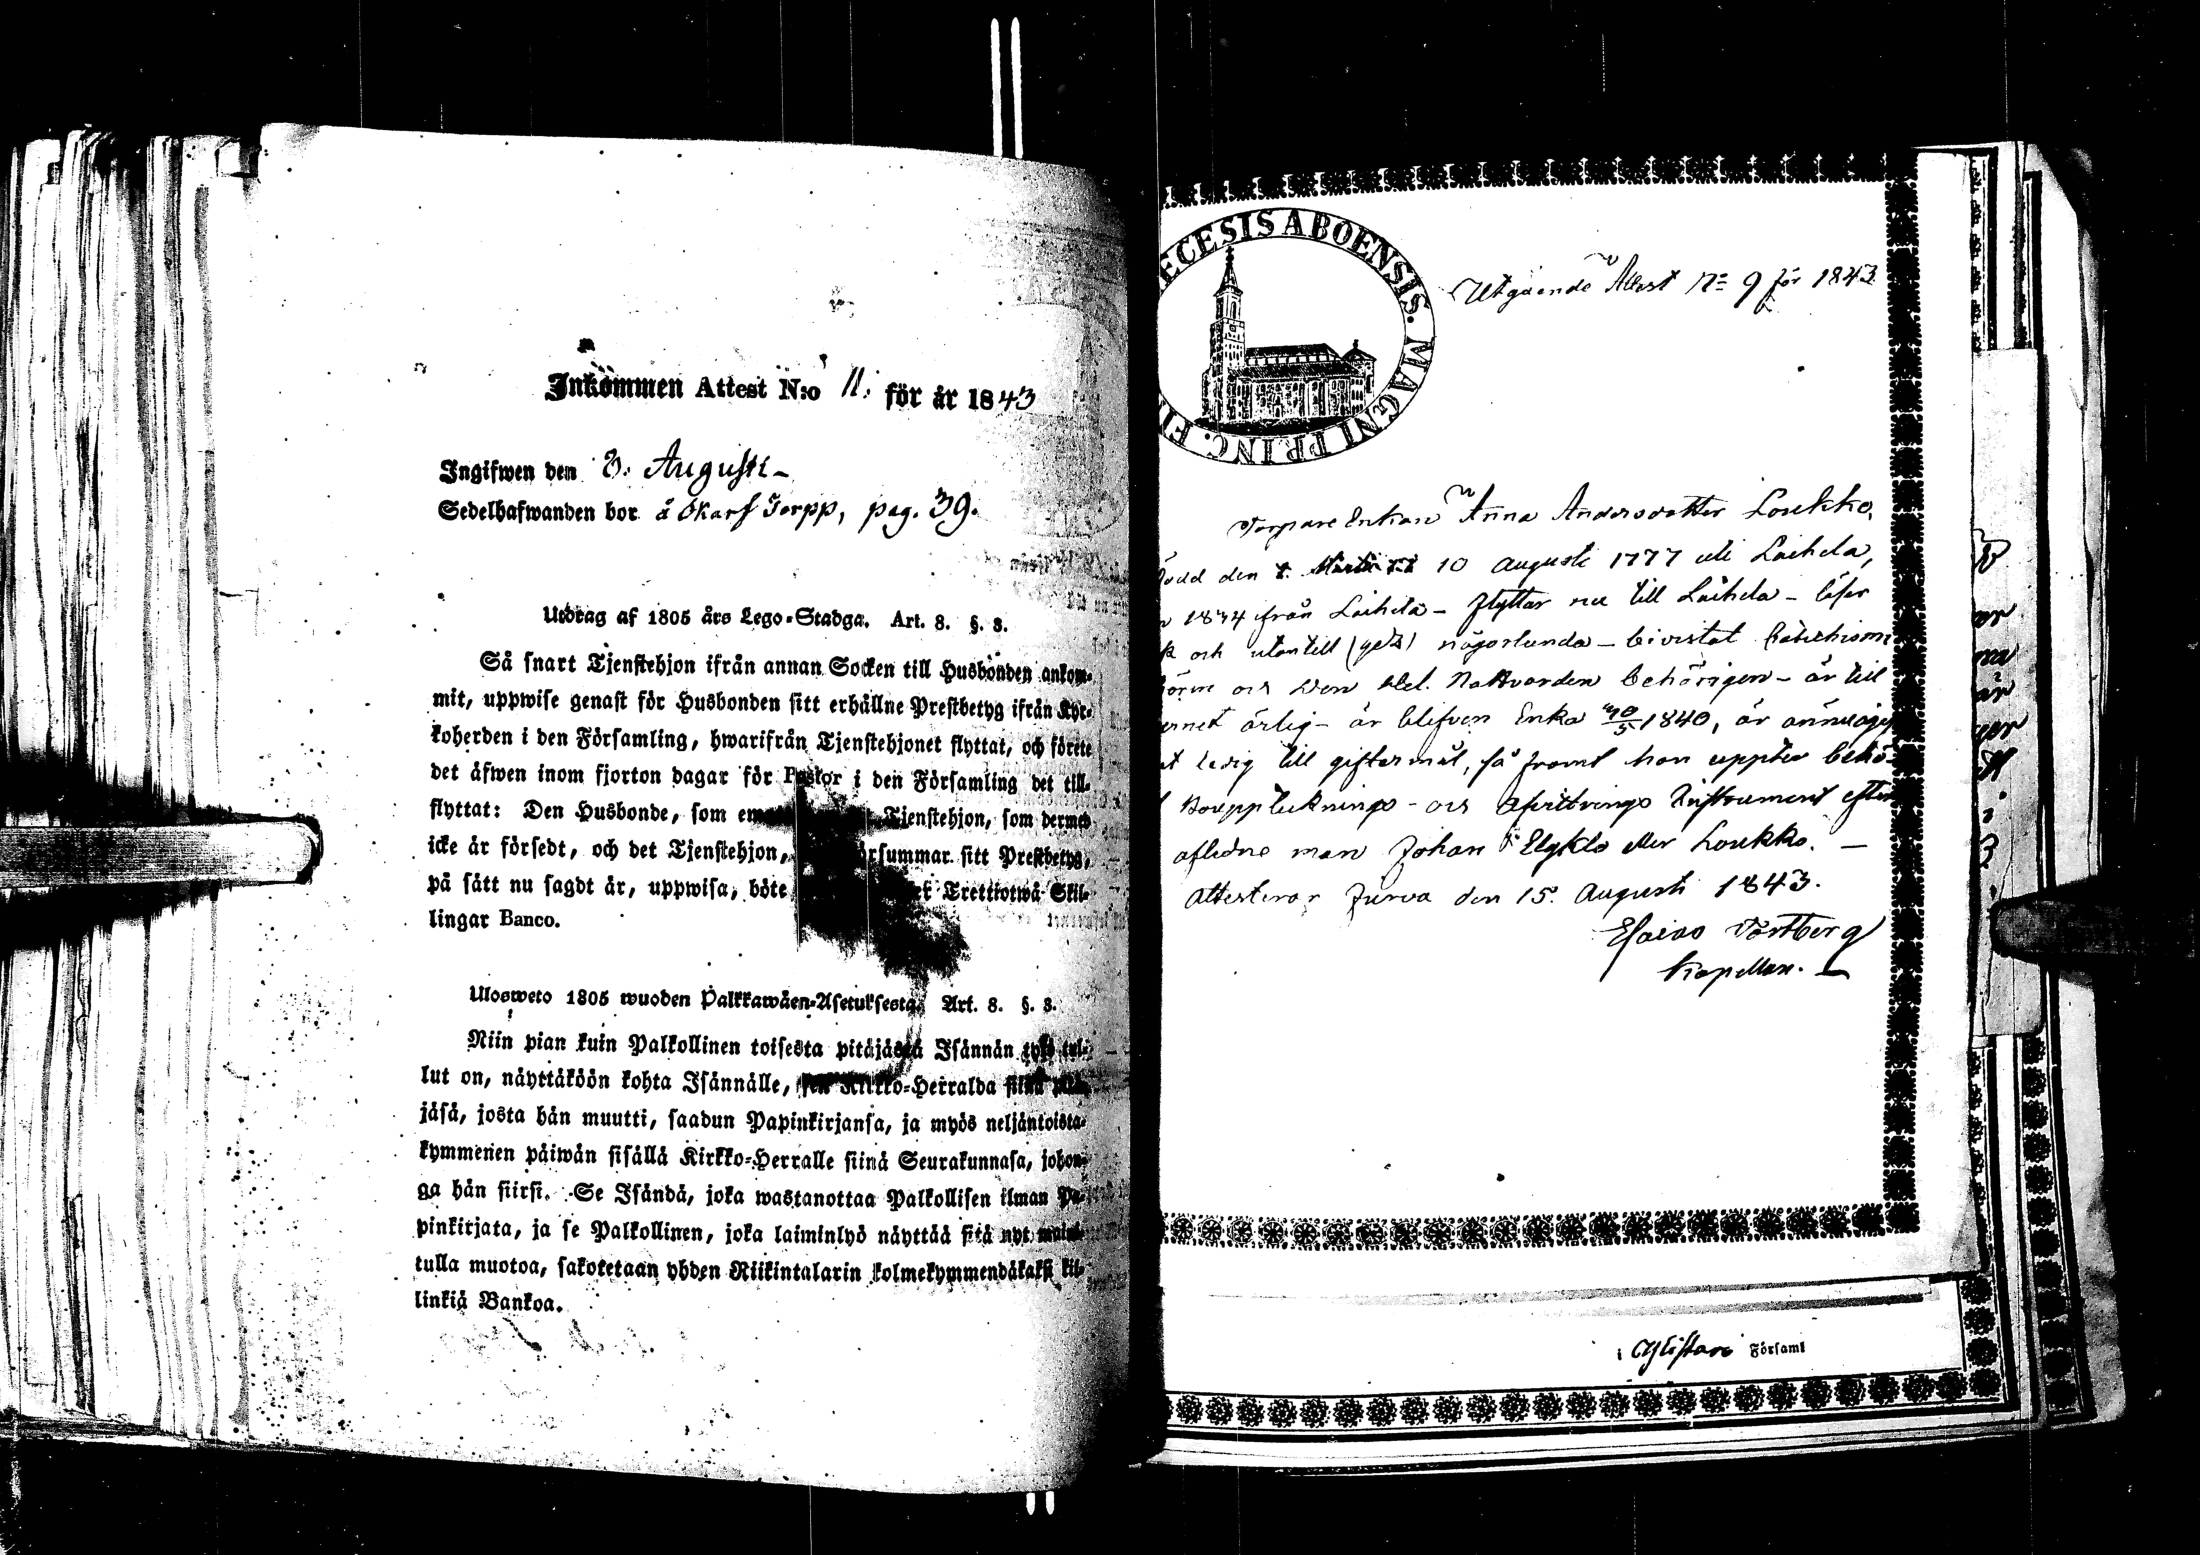 Inkommen Attest N:o 11. för år 1843
Ingifwen den 3. Augusti –
Sedelhafwanden bor å Okars Jerpp, pag. 39.
Utdrag af 1805 års Lego-Stadga. Art. 8. §. 8.
Så snart Tjenstehjon ifrån annan Socken till Husbonden ankom-
mit, uppwise genast för Husbonden sitt erhållne Prestbetyg ifrån Kyr-
koherden i den Församling, hwarifrån Tjenstehjonet flyttat, och förete
det äfwen inom fjorton dagar för Pastor i den Församling det till-
flyttat: Den Husbonde, som Tjenstehjon, som dermed
icke är försedt, och det Tjenstehjon, försummar sitt Prestbetyg,
på sätt nu sagdt är, uppwisa, böte Trettiotwå Skil-
lingar Banco.
Ulosweto 1805 wuoden Palkkawäen-Asetuksesta. Art. 8. §. 8.
Niin pian kuin Palkollinen toisesta pitäjästä Isännän tykö tul-
lut on, näyttäköön kohta Isännälle, sen Kirkko-Herralda siinä pitä-
jäsä, josta hän muutti, saadun Papinkirjansa, ja myös neljäntoista-
kymmenen päiwän sisällä Kirkko-Herralle siinä Seurakunnasa, johon-
ga hän siirsi. Se Isändä, joka wastanottaa Palkollisen ilman Pa-
pinkirjata, ja se Palkollinen, joka laiminlyö näyttää sitä nyt mainit-
tulla muotoa, sakotetaan yhden Riikintalarin kolmekymmendäkaksi kil-
linkiä Bankoa.
ECESIS ABOENSIS. MAGNI PRINC. FIN
Utgående Attest No 9 för 1843
Torpare Enkan Anna Andersdotter Loukko,
född den 10 Augusti 1777 uti Laihela,
1834 ifrån Laihela – flyttar nu till Laihela – läser
och utantill någorlunda – bivistat Catechismi
förhör och Den Hel. Nattvarden behörigen – är till
ärlig – är blifven Enka 30/5 1840, är ännu
ledig till giftermål, så framt hon uppter behö-
Bouppteknings – och Afvittrings Instrument efter
aflidne man Johan Elyklo eller Loukko. –
Attesterar Jurva den 15. Augusti 1843.
Esaias Törtberg
Kapellan. –
i Ylistaro Församl